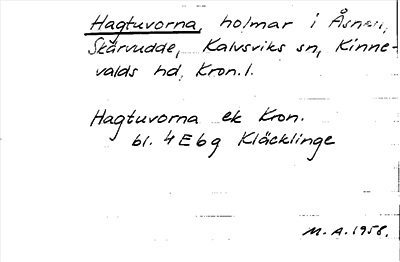 Hagtuvorna, holmar i Åsnen,
Skärvudde, Kalvsviks sn, Kinne-
valds hd, Kron.l.
Hagtuvorna ek Kron.
bl. 4E6g Kläcklinge
M.A. 1958.